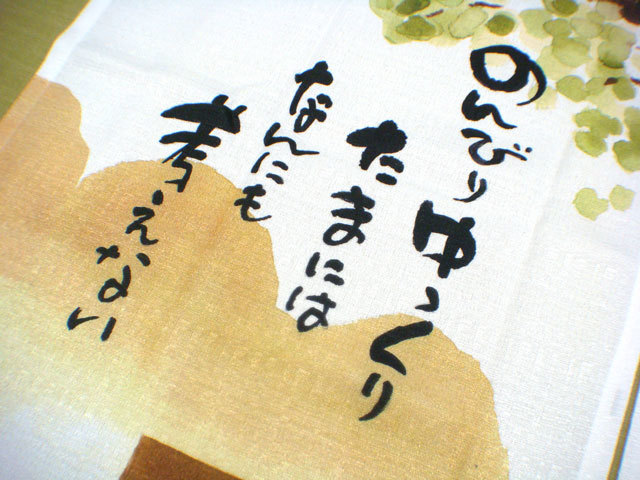 のんびり
ゆっくり
たまには
なんにも
考えない